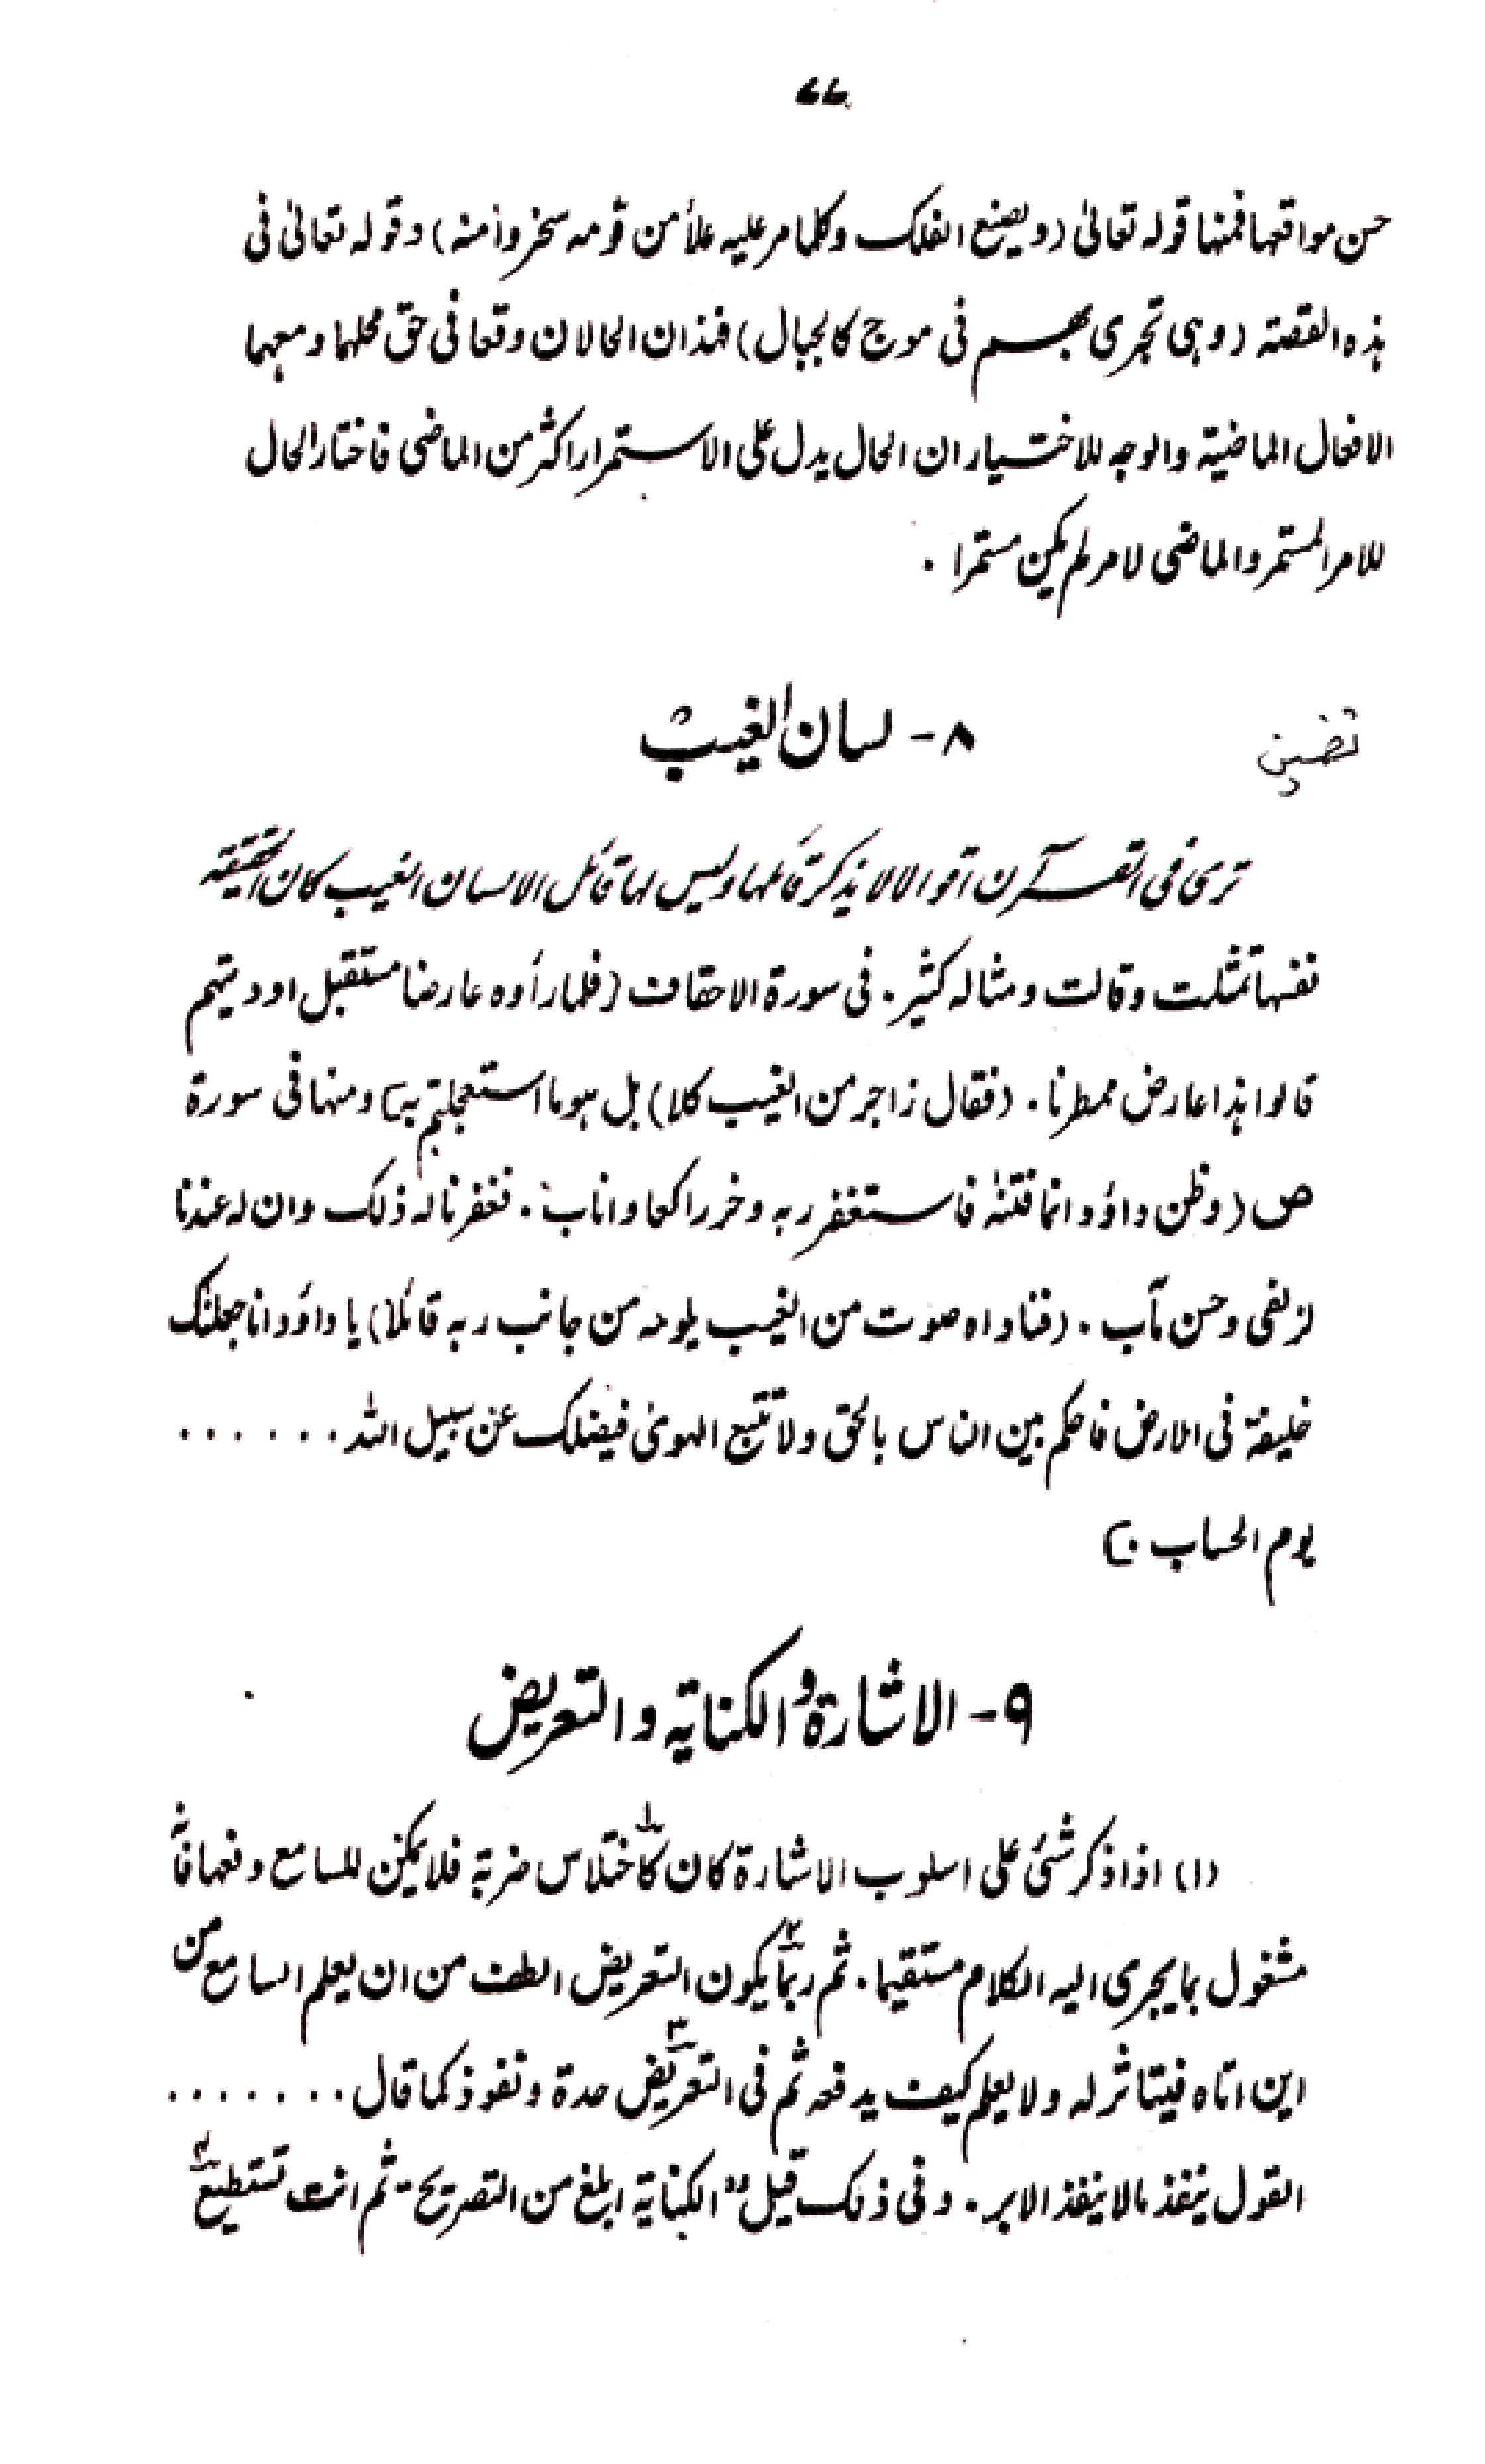 ٧٧
حسن مواقعها فمنها قوله تعالىٰ (ويصنع الفلك وكلما مر عليه ملأ من قومه سخروا منه) وقوله تعالىٰ فى
هذه القصة (وهى تجرى بهم فى موج كالجبال) فهذان الحالان وقعا فى حق محلهما ومعهما
الافعال الماضية والوجه للاختيار ان الحال يدل على الاستمرار اكثر من الماضى فاختار الحال
للامر المستمر والماضى لامر لم يكن مستمرا .
٨ - لسان الغيب
تضمين
ترى فى القرآن اقوالا لا يذكر قائلها وليس لها قائل الا لسان الغيب كان الحقيقة
نفسها تمثلت وقالت ومثاله كثير . فى سورة الاحقاف (فلما رأوه عارضا مستقبل اوديتهم
قالوا هذا عارض ممطرنا . (فقال زاجر من الغيب كلا) بل هو ما استعجلتم به) ومنها فى سورة
ص (وظن داؤد انما فتنٰه فاستغفر ربه وخر راكعا واناب . فغفرنا له ذلك وان له عندنا
لزلفى وحسن مآب . (فناداه صوت من الغيب يلومه من جانب ربه قائلا) يا داؤد انا جعلنٰك
خليفة فى الارض فاحكم بين الناس بالحق ولا تتبع الهوىٰ فيضلك عن سبيل الله . . . . . .
يوم الحساب .)
٩ - الاشارة والكناية والتعريض
(١) اذا ذكر شئ على اسلوب الاشارة كان كاختلاس١ ضربة فلا يمكن للسامع دفعها فانه
مشغول بما يجرى اليه الكلام مستقيما . ثم ربما٢ يكون التعريض الطف من ان يعلم السامع من
اين اتاه فيتاثر له ولا يعلم كيف يدفعه ثم فى التعريض٣ حدة ونفوذ كما قال . . . . . . .
القول ينفذ مالا ينفذ الابر . وفى ذلك قيل "الكناية ابلغ من التصريح - ثم انت تستطيع٤